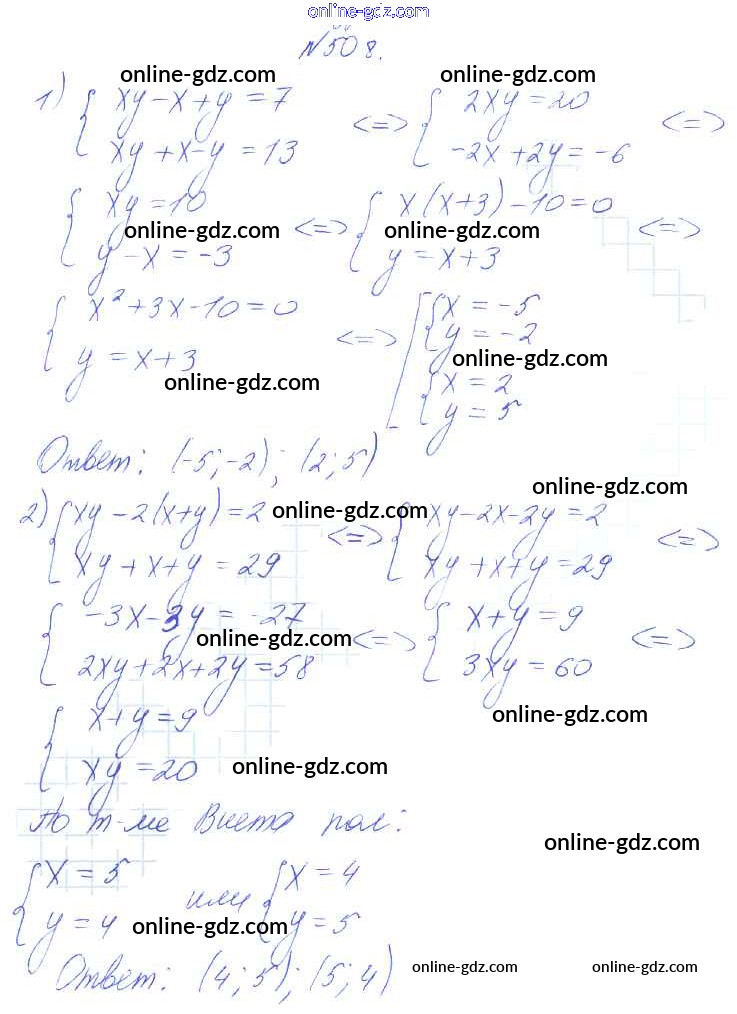 online-gdz.com
N508.
online-gdz.com online-gdz.com
1) { xy-x+y=7 <=> { 2xy=20 <=>
xy+x-y=13 -2x+2y=-6
{ xy=10 <=> { x(x+3)-10=0 <=>
online-gdz.com online-gdz.com
y-x=-3 y=x+3
{ x²+3x-10=0 <=> [ { x=-5
y=-2
y=x+3 online-gdz.com
online-gdz.com { x=2
y=5
Ответ: (-5;-2); (2;5)
online-gdz.com
2) { xy-2(x+y)=2 online-gdz.com <=> { xy-2x-2y=2 <=>
xy+x+y=29 xy+x+y=29
{ -3x-3y=-27 <=> { x+y=9 <=>
online-gdz.com
2xy+2x+2y=58 3xy=60
online-gdz.com
{ x+y=9
xy=20 online-gdz.com
По т-ме Виета пол:
online-gdz.com
{ x=5 или { x=4
y=4 online-gdz.com y=5
Ответ: (4;5); (5;4) online-gdz.com online-gdz.com